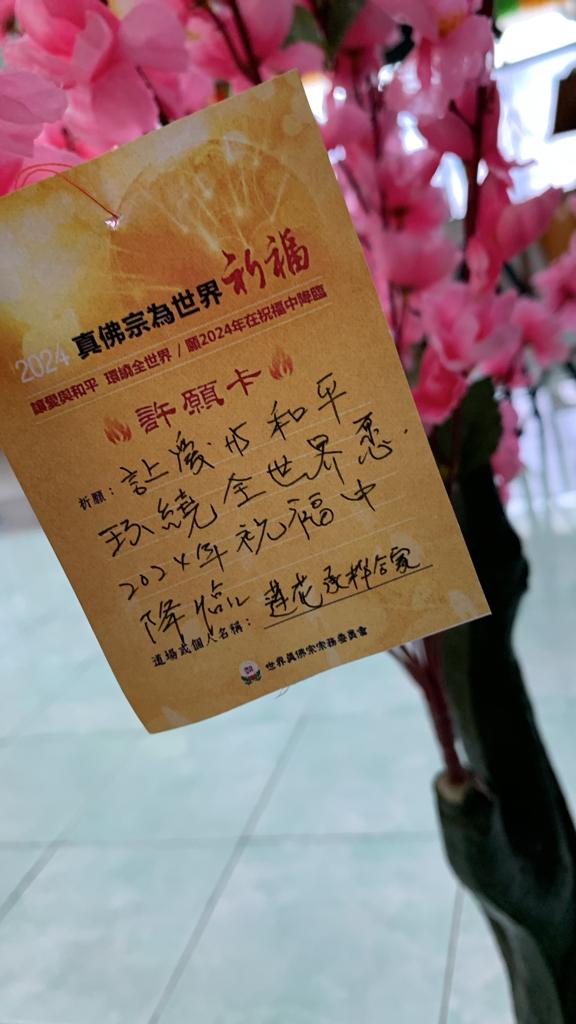 2024 真佛宗為世界祈福
讓愛與和平 環繞全世界 / 願2024年在祝福中降臨
許願卡
祈願：让愛与和平
环繞全世界愿.
2024年祝福中
降临
道場或個人名稱：蓮花承桦合家
世界真佛宗宗務委員會